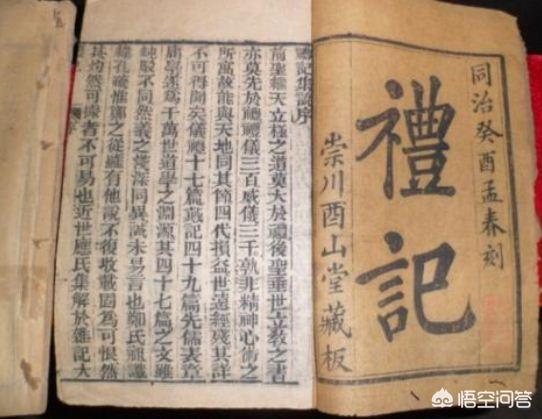 同治癸酉孟春刻
禮記
崇川酉山堂藏板
禮記集說序
前聖繼天立極之道莫大於禮後聖垂世立教之書
亦莫先於禮禮儀三百威儀三千孰非精神心術之
所寓故能與天地同其節四代損益世遠經殘其詳
不可得聞矣儀禮十七篇戴記四十九篇先儒表章
庸學遂為千萬世道學之淵源其四十七篇之文雖
純駁不同然義之淺深同異誠未易言也鄭氏祖讖
緯孔疏惟鄭之從雖有他說不復收載固為可恨然
其灼然可據者不可易也近世應氏集解於雜記大
悟空问答